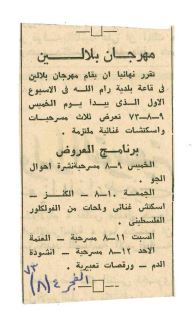 مهرجان بلالين
تقرر نهائيا ان يقام مهرجان بلالين
في قاعة بلدية رام الله في الاسبوع
الاول الذي يبدأ يوم الخميس
٩-٨-٧٣ تعرض ثلاث مسرحيات
واسكتشات غنائية ملتزمة .
برنامج العروض
الخميس ٩-٨ مسرحية نشرة احوال
الجو .
الجمعة ١٠-٨ - الكنز -
اسكتش غنائي ولمحات من الفولكلور
الفلسطيني .
السبت ١١-٨ مسرحية - العتمة
الاحد ١٢-٨ مسرحية - انشودة
الدم - ورقصات تعبيرية .
الفجر ٤/٨/٧٣